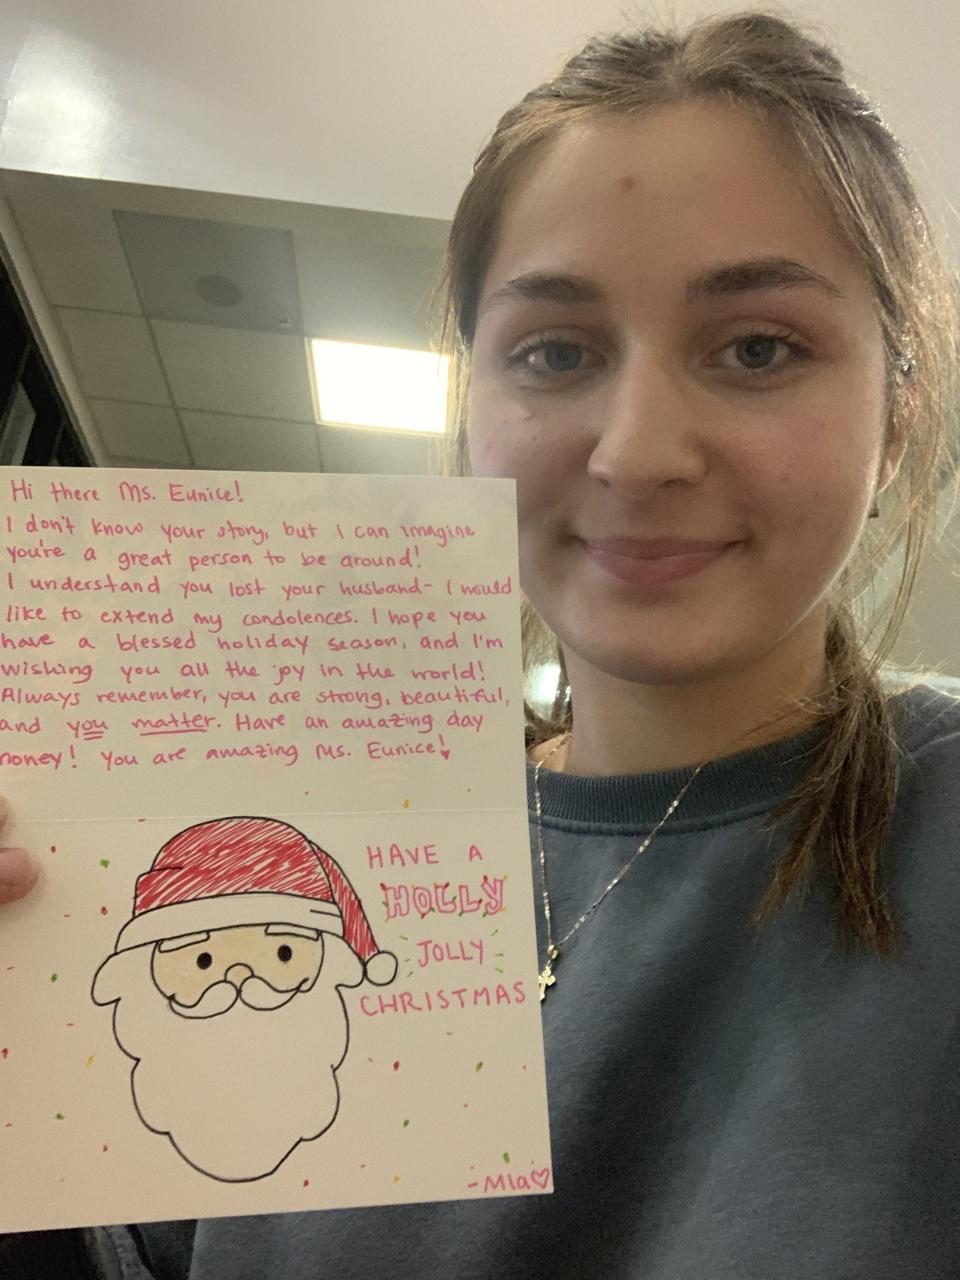 Hi there Ms. Eunice!
I don't know your story, but I can imagine
you're a great person to be around!
I understand you lost your husband- I would
like to extend my condolences. I hope you
have a blessed holiday season, and I'm
wishing you all the joy in the world!
Always remember, you are strong, beautiful,
and you matter. Have an amazing day
honey! You are amazing Ms. Eunice!
HAVE A
HOLLY
JOLLY
CHRISTMAS
-Mia♡